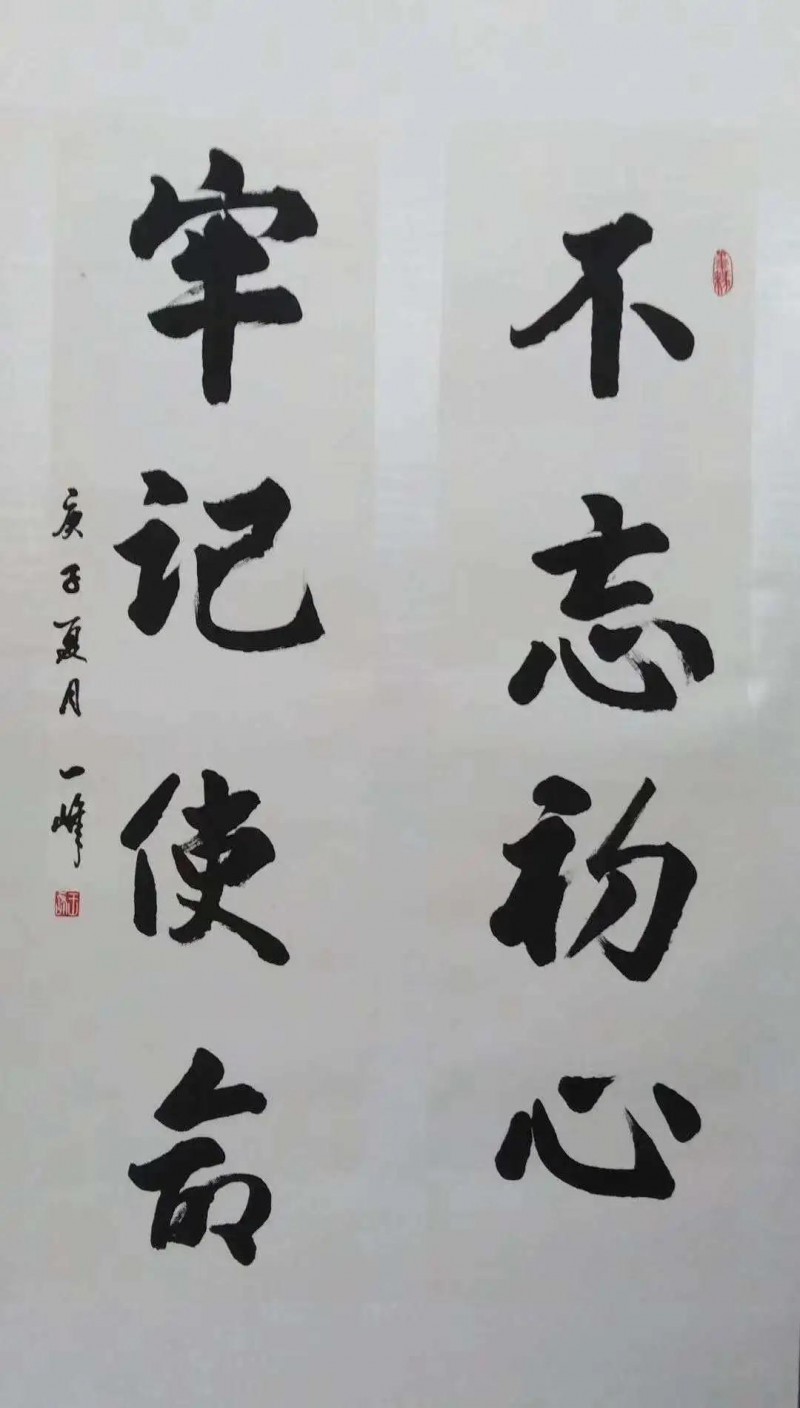 不忘初心
牢记使命
庚子夏月一峰